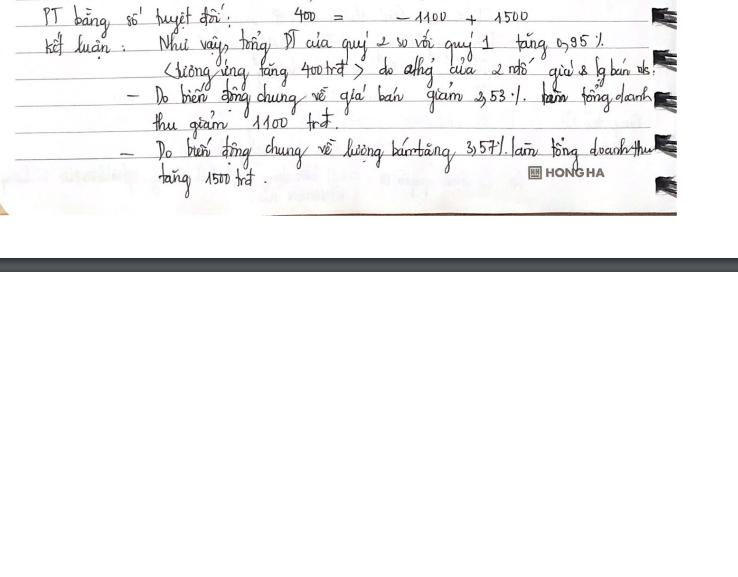 PT bằng số tuyệt đối: 400 = - 1100 + 1500
Kết luận: Như vậy, tổng DT của quý 2 so với quý 1 tăng 0,95%
<tương ứng tăng 400trđ> do ảhg của 2 ntố giá & lg bán ra.
- Do biến động chung về giá bán giảm 2,53%. làm tổng doanh
thu giảm 1100 trđ.
- Do biến động chung về lượng bán tăng 3,57%. làm tổng doanh thu
tăng 1500 trđ.
HONG HA